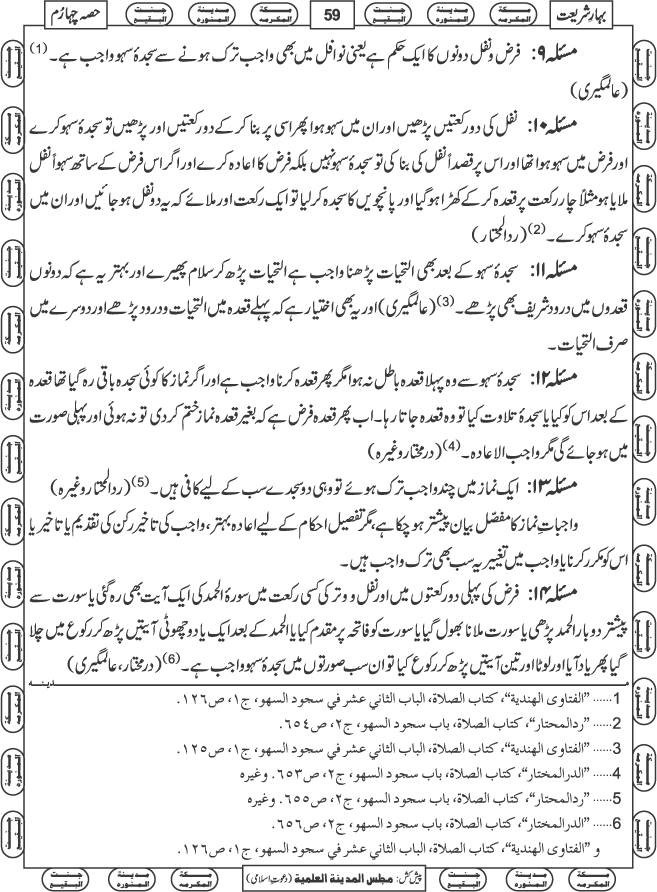 بہارِ شریعت
59
حصہ چہارم
مسئلہ ۹: فرض و نفل دونوں کا ایک حکم ہے یعنی نوافل میں بھی واجب ترک ہونے سے سجدۂ سہو واجب ہے۔ (1)
(عالمگیری)
مسئلہ ۱۰: نفل کی دو رکعتیں پڑھیں اور ان میں سہو ہوا پھر اسی پر بنا کر کے دو رکعتیں اور پڑھیں تو سجدۂ سہو کرے
اور فرض میں سہو ہوا تھا اور اس پر قصداً نفل کی بنا کی تو سجدۂ سہو نہیں بلکہ فرض کا اعادہ کرے اور اگر اس فرض کے ساتھ سہواً نفل
ملایا ہو مثلاً چار رکعت پر قعدہ کر کے کھڑا ہو گیا اور پانچویں کا سجدہ کر لیا تو ایک رکعت اور ملائے کہ یہ دو نفل ہو جائیں اور ان میں
سجدۂ سہو کرے۔ (2) (ردالمحتار)
مسئلہ ۱۱: سجدۂ سہو کے بعد بھی التحیات پڑھنا واجب ہے التحیات پڑھ کر سلام پھیرے اور بہتر یہ ہے کہ دونوں
قعدوں میں درود شریف بھی پڑھے۔ (3) (عالمگیری) اور یہ بھی اختیار ہے کہ پہلے قعدہ میں التحیات و درود پڑھے اور دوسرے میں
صرف التحیات۔
مسئلہ ۱۲: سجدۂ سہو سے وہ پہلا قعدہ باطل نہ ہوا مگر پھر قعدہ کرنا واجب ہے اور اگر نماز کا کوئی سجدہ باقی رہ گیا تھا قعدہ
کے بعد اس کو کیا یا سجدۂ تلاوت کیا تو وہ قعدہ جاتا رہا۔ اب پھر قعدہ فرض ہے کہ بغیر قعدہ نماز ختم کر دی تو نہ ہوئی اور پہلی صورت
میں ہو جائے گی مگر واجب الاعادہ۔ (4) (درمختار وغیرہ)
مسئلہ ۱۳: ایک نماز میں چند واجب ترک ہوئے تو وہی دو سجدے سب کے لیے کافی ہیں۔ (5) (ردالمحتار وغیرہ)
واجباتِ نماز کا مفصّل بیان پیشتر ہو چکا ہے، مگر تفصیل احکام کے لیے اعادہ بہتر، واجب کی تاخیر رکن کی تقدیم یا تاخیر یا
اس کو مکرر کرنا یا واجب میں تغییر یہ سب بھی ترک واجب ہیں۔
مسئلہ ۱۴: فرض کی پہلی دو رکعتوں میں اور نفل و وتر کی کسی رکعت میں سورۂ الحمد کی ایک آیت بھی رہ گئی یا سورت سے
پیشتر دو بار الحمد پڑھی یا سورت ملانا بھول گیا یا سورت کو فاتحہ پر مقدم کیا یا الحمد کے بعد ایک یا دو چھوٹی آیتیں پڑھ کر رکوع میں چلا
گیا پھر یاد آیا اور لوٹا اور تین آیتیں پڑھ کر رکوع کیا تو ان سب صورتوں میں سجدۂ سہو واجب ہے۔ (6) (درمختار، عالمگیری)
1...... ”الفتاوى الهندية“، كتاب الصلاة، الباب الثاني عشر في سجود السهو، ج۱، ص۱۲۶.
2...... ”ردالمحتار“، كتاب الصلاة، باب سجود السهو، ج۲، ص۶۵۴.
3...... ”الفتاوى الهندية“، كتاب الصلاة، الباب الثاني عشر في سجود السهو، ج۱، ص۱۲۵.
4...... ”الدرالمختار“، كتاب الصلاة، باب سجود السهو، ج۲، ص۶۵۳. وغيره
5...... ”ردالمحتار“، كتاب الصلاة، باب سجود السهو، ج۲، ص۶۵۵. وغيره
6...... ”الدرالمختار“، كتاب الصلاة، باب سجود السهو، ج۲، ص۶۵۶.
و ”الفتاوى الهندية“، كتاب الصلاة، الباب الثاني عشر في سجود السهو، ج۱، ص۱۲۶.
پیش کش: مجلس المدينة العلمية (دعوتِ اسلامی)